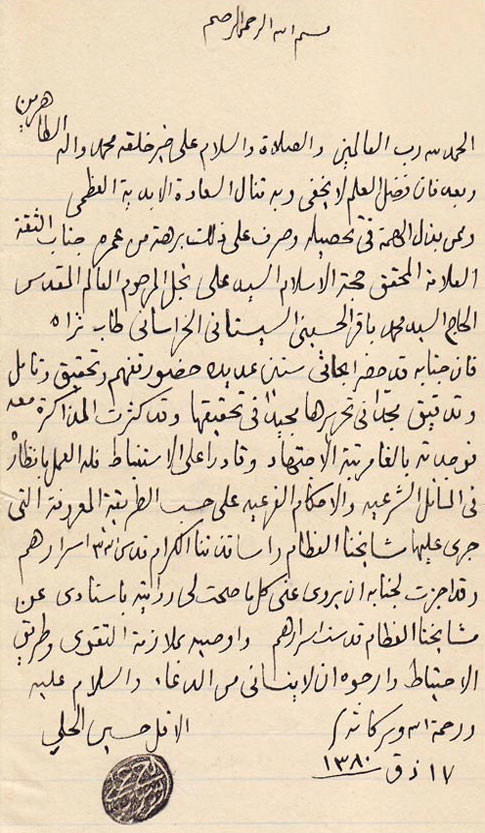 بسم الله الرحمن الرحيم
الحمد لله رب العالمين والصلاة والسلام على خير خلقه محمد واله الطاهرين
وبعد فان فضل العلم لا يخفى وبه تنال السعادة الابدية العظمى
وممن بذل الهمة في تحصيله وصرف على ذلك برهة من عمره جناب الثقة
العلامة المحقق حجة الاسلام السيد علي نجل المرحوم العالم المقدس
الحاج السيد محمد باقر الحسيني السيستاني الخراساني طاب ثراه
فان جنابه قد حضر ابحاثي سنين عديده حضور تفهم وتحقيق وتامل
وتدقيق مجدّا في تحريرها مجيدا في تحقيقها وقد كثرت المذاكرة معه
فوجدته بالغا مرتبة الاجتهاد وقادرا على الاستنباط فله العمل بانظاره
في المسائل الشرعيه والاحكام الفرعيه على حسب الطريقة المعروفة التي
جرى عليها مشايخنا العظام واساتذتنا الكرام قدس الله اسرارهم
وقد اجزت لجنابه ان يروي عني كل ما صحت لي روايته باسنادي عن
مشايخنا العظام قدست اسرارهم واوصيه بملازمة التقوى وطريق
الاحتياط وارجوه ان لا ينساني من الدعاء والسلام عليه
ورحمة الله وبركاته
الاقل حسين الحلي
١٧ ذق ١٣٨٠